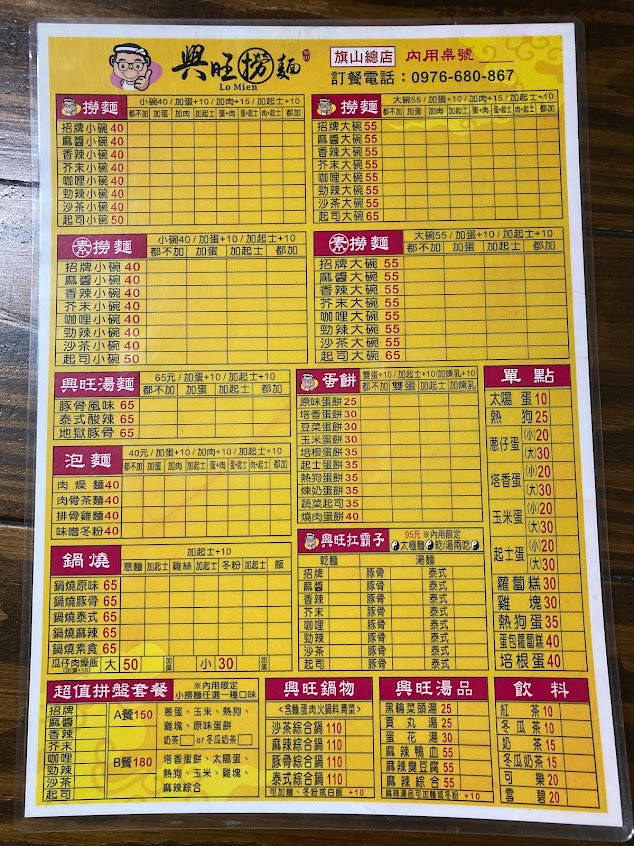 興旺撈麵
Lo Mien
旗山總店 內用桌號
訂餐電話：0976-680-867
撈麵 小碗40 / 加蛋+10 / 加肉+15 / 加起士+10
都不加 加蛋 加肉 加起士 蛋+肉 蛋+起士 肉+起士 都加
招牌小碗 40
麻醬小碗 40
香辣小碗 40
芥末小碗 40
咖哩小碗 40
勁辣小碗 40
沙茶小碗 40
起司小碗 50
撈麵 大碗55 / 加蛋+10 / 加肉+15 / 加起士+10
都不加 加蛋 加肉 加起士 蛋+肉 蛋+起士 肉+起士 都加
招牌大碗 55
麻醬大碗 55
香辣大碗 55
芥末大碗 55
咖哩大碗 55
勁辣大碗 55
沙茶大碗 55
起司大碗 65
素撈麵 小碗40 / 加蛋+10 / 加起士+10
都不加 加蛋 加起士 都加
招牌小碗 40
麻醬小碗 40
香辣小碗 40
芥末小碗 40
咖哩小碗 40
勁辣小碗 40
沙茶小碗 40
起司小碗 50
素撈麵 大碗55 / 加蛋+10 / 加起士+10
都不加 加蛋 加起士 都加
招牌大碗 55
麻醬大碗 55
香辣大碗 55
芥末大碗 55
咖哩大碗 55
勁辣大碗 55
沙茶大碗 55
起司大碗 65
興旺湯麵 65元 / 加蛋+10 / 加起士+10
都不加 加蛋 加起士 都加
豚骨風味 65
泰式酸辣 65
地獄豚骨 65
泡麵 40元 / 加蛋+10 / 加肉+10 / 加起士+10
都不加 加蛋 加肉 加起士 蛋+肉 蛋+起士 肉+起士 都加
肉燥麵 40
肉骨茶麵 40
排骨雞麵 40
味噌冬粉 40
鍋燒 加起士+10
意麵 加起士 雞絲 加起士 冬粉 加起士 飯
鍋燒原味 65
鍋燒豚骨 65
鍋燒泰式 65
鍋燒麻辣 65
鍋燒素食 65
瓜仔肉燥飯 (加蛋+10) 大 50 加蛋 小 30 加蛋
蛋餅 雙蛋+10 / 加起士+10/加煉乳+10
都不加 雙蛋 加起士 加煉乳
原味蛋餅 25
塔香蛋餅 30
豆菜蛋餅 30
玉米蛋餅 30
培根蛋餅 35
起士蛋餅 35
熱狗蛋餅 35
煉奶蛋餅 35
蔬菜起司 35
燒肉蛋餅 40
興旺扛霸子 95元 ※內用限定
太極麵 乾/湯兩吃
乾麵 湯麵
招牌 豚骨 泰式
麻醬 豚骨 泰式
香辣 豚骨 泰式
芥末 豚骨 泰式
咖哩 豚骨 泰式
勁辣 豚骨 泰式
沙茶 豚骨 泰式
起司 豚骨 泰式
單點
太陽蛋 10
熱狗 25
蔥仔蛋 (小)20
(大)30
塔香蛋 (小)20
(大)30
玉米蛋 (小)20
(大)30
起士蛋 (小)20
(大)30
蘿蔔糕 30
雞塊 30
熱狗蛋 35
蛋包蘿蔔糕 40
培根蛋 40
超值拼盤套餐 ※內用限定
小撈麵任選一種口味
招牌
麻醬
香辣
芥末
咖哩
勁辣
沙茶
起司
A餐150 蔥蛋、玉米、熱狗、
雞塊、原味蛋餅
奶茶 or 冬瓜奶茶
B餐180 塔香蛋餅、太陽蛋、
熱狗、玉米、雞塊、
麻辣綜合
興旺鍋物
<含麵蛋肉火鍋料青菜>
沙茶綜合鍋 110
麻辣綜合鍋 110
豚骨綜合鍋 110
泰式綜合鍋 110
可加麵、冬粉或白飯 +10
興旺湯品
黑輪菜頭湯 25
貢丸湯 25
蛋花湯 30
麻辣鴨血 55
麻辣臭豆腐 55
麻辣綜合 55
麻辣湯品可加麵或冬粉 +10
飲料
紅茶 10
冬瓜茶 10
奶茶 15
冬瓜奶茶 15
可樂 20
雪碧 20